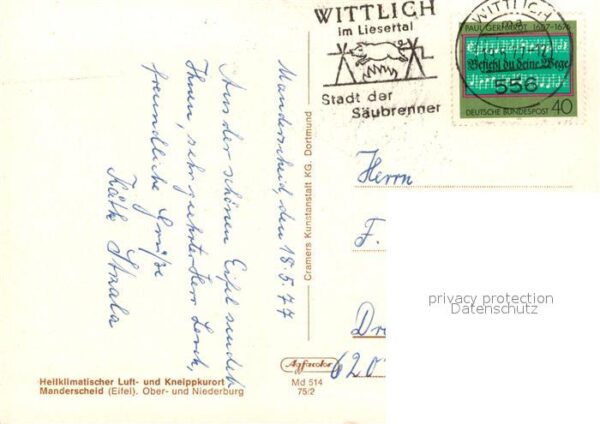 WITTLICH
im Liesertal
Stadt der
Säubrenner
WITTLICH
556
PAUL GERHARDT 1607-1676
Befiehl du deine Wege
DEUTSCHE BUNDESPOST 40
Manderscheid, den 18.5.77
Aus der schönen Eifel sendet
Ihnen, sehr geehrter Herr Lorch,
freundliche Grüße
Käthe
Herrn
F.
Dr
620
Cramers Kunstanstalt KG. Dortmund
Agfacolor
Md 514
75/2
Heilklimatischer Luft- und Kneippkurort
Manderscheid (Eifel). Ober- und Niederburg
privacy protection
Datenschutz